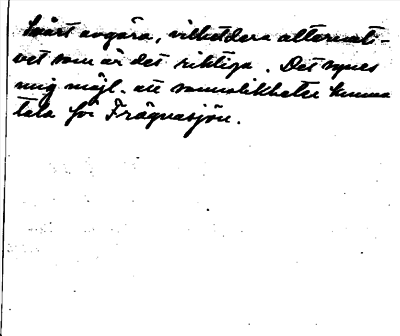 Svårt avgöra, vilketdera alternati-
vet som är det riktiga. Det synes
mig möjl. att sannolikheten kunna
tala för Frägnasjön.